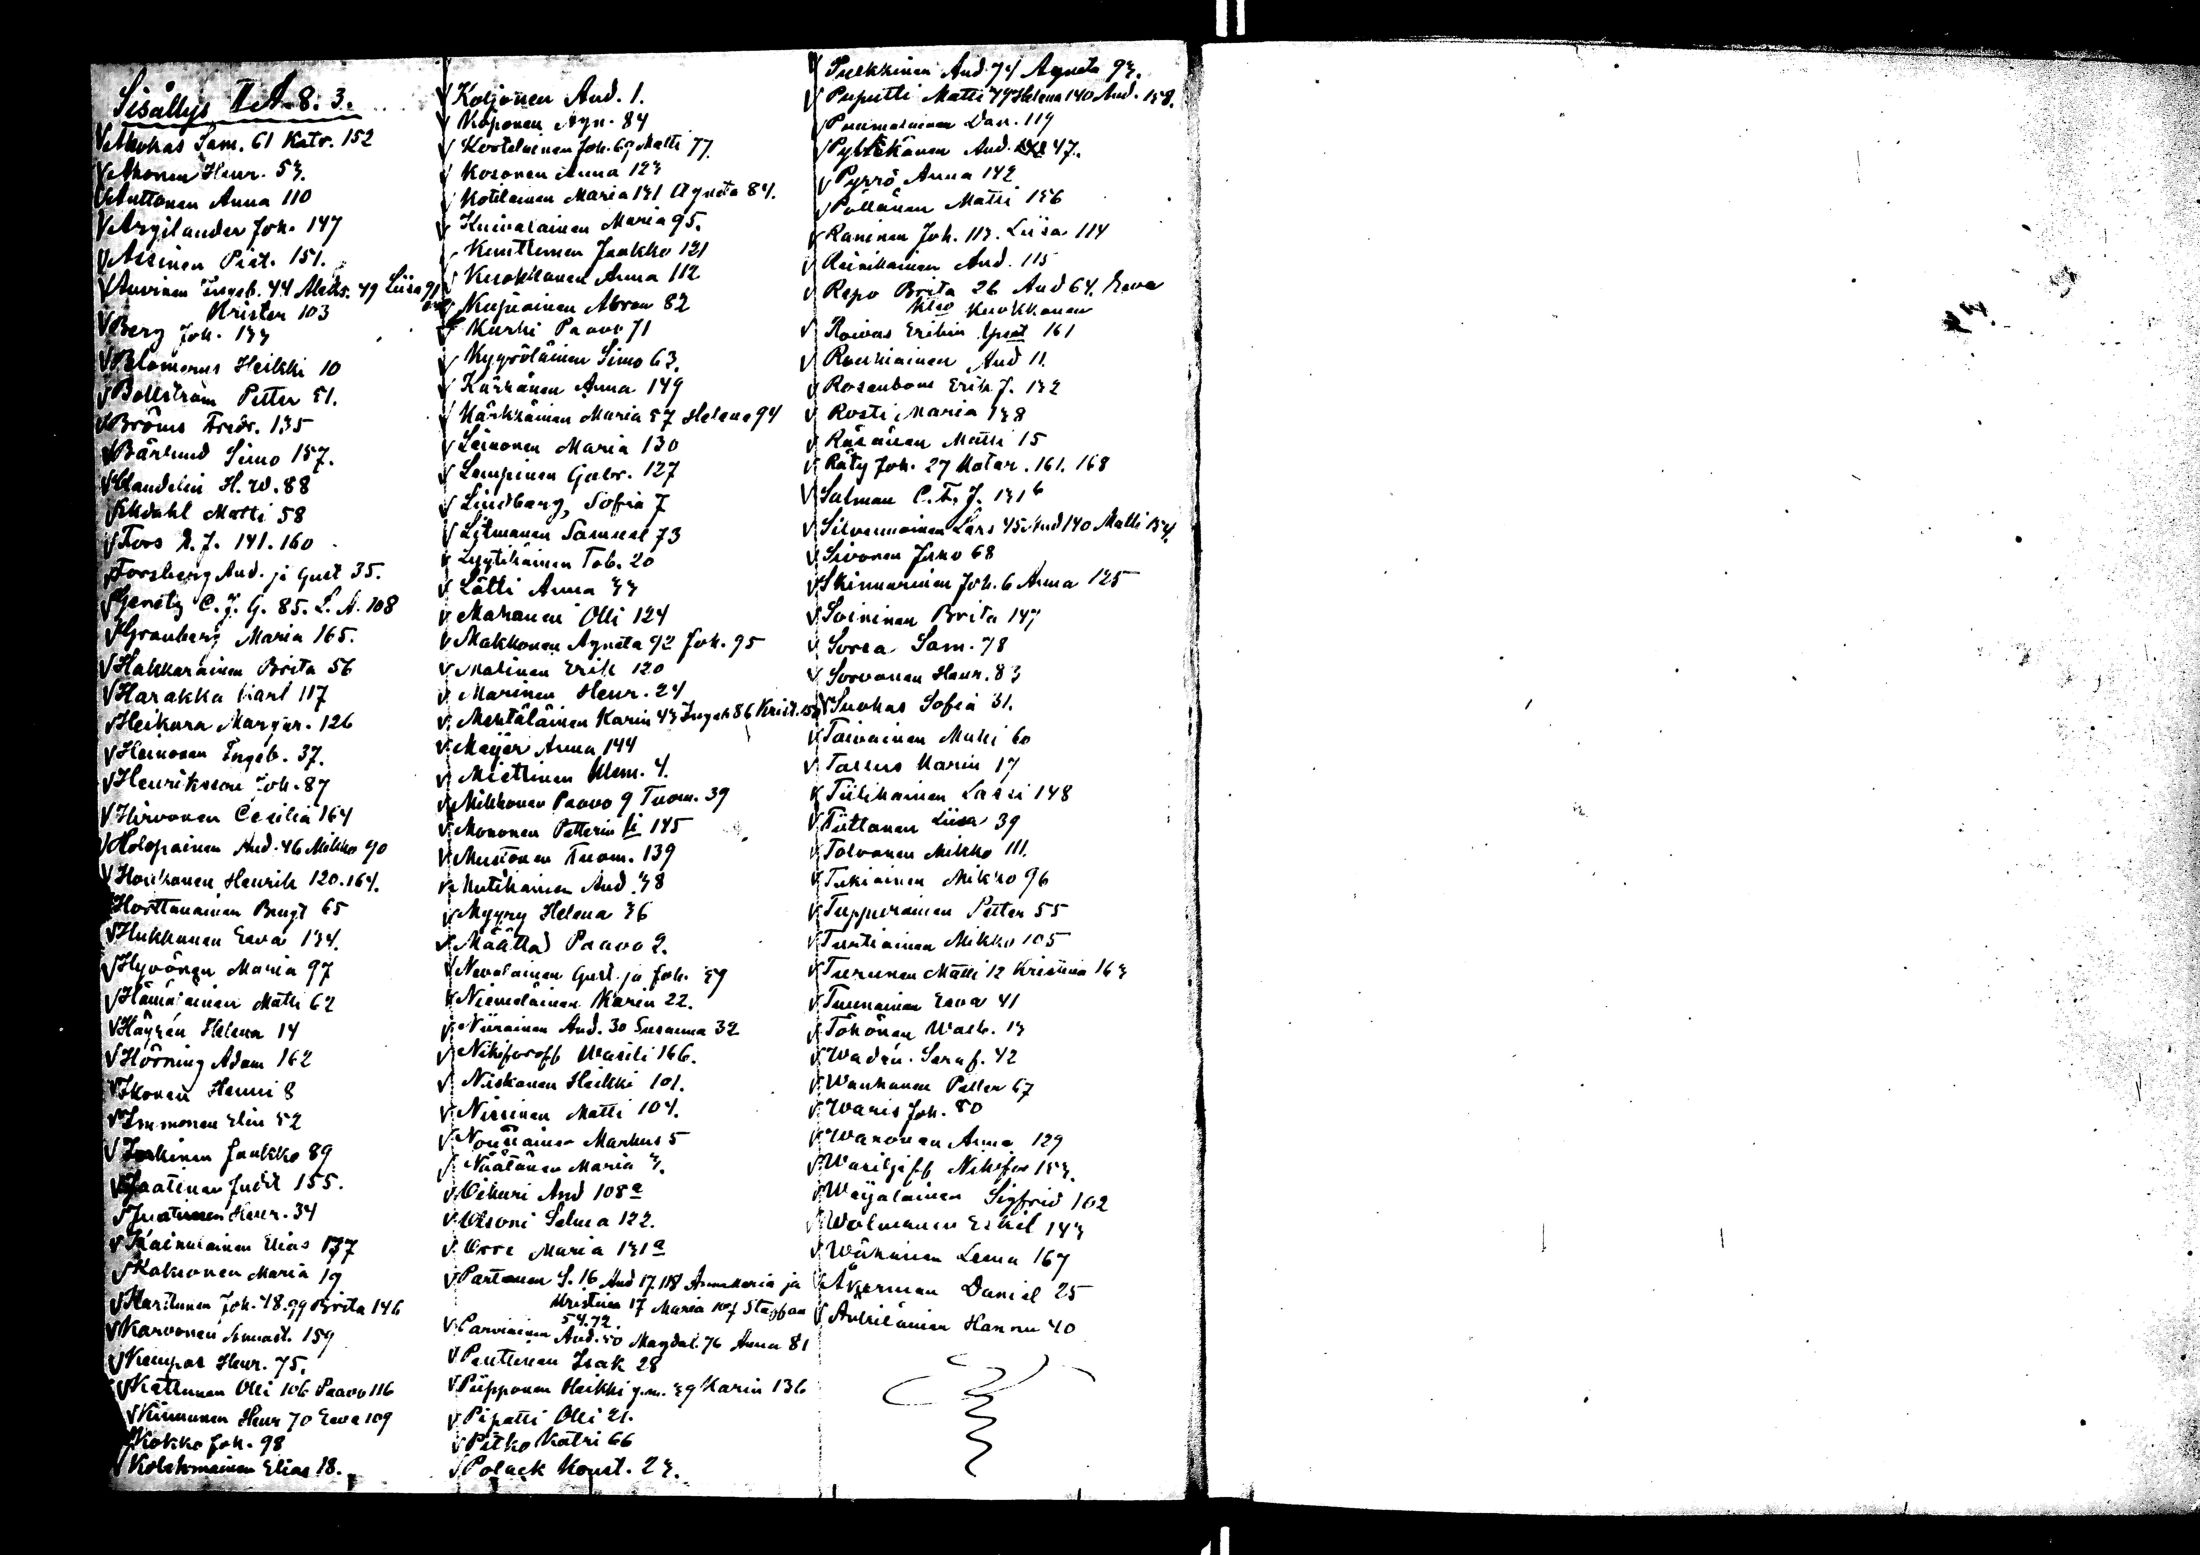 Sisällys II A. 8. 3.
Ahokas Sam. 61 Katr. 152
Ahonen Henr. 53.
Anttonen Anna 110
Argilander Joh. 147
Assinen Piet. 151.
Auvinen Ingeb. 44 Aleks. 49 Liisa 91
Krister 103
Berg Joh. 133
Blomerus Heikki 10
Bollström Petter 51.
Bröms Fredr. 135
Bärlund Simo 157.
Clandelin H. W. 88
Ekdahl Matti 58
Fors A. J. 141. 160
Forsberg And. ja Gust 35.
Genetz C. J. G. 85. L. A. 108
Granberg Maria 165.
Hakkarainen Brita 56
Harakka Karl 117
Heikura Margar. 126
Heinonen Ingeb. 37.
Henriksson Joh. 87
Hirvonen Cecilia 164
Holopainen And. 46 Mikko 90
Honkanen Henrik 120. 164.
Horttanainen Bengt 65
Hukkanen Eeva 134.
Hyvönen Maria 97
Hämäläinen Matti 62
Häyrén Helena 14
Hörning Adam 162
Ikonen Henni 8
Immonen Elin 52
Inkinen Jaakko 89
Jaatinen Judit 155.
Juutinen Henr. 34
Kainulainen Elias 137
Kakkonen Maria 19
Karttunen Joh. 48. 99 Brita 146
Karvonen Annast. 159
Kempas Henr. 75.
Kettunen Olli 106 Paavo 116
Kinnunen Henr 70 Eeva 109
Kokko Joh. 98
Kolehmainen Elias 18.
Koljonen And. 1.
Koponen Agn. 84
Kortelainen Joh. 69 Matti 77.
Kosonen Anna 123
Kotilainen Maria 131 Agneta 84.
Kuivalainen Maria 95.
Kunttinen Jaakko 121
Kuokkanen Anna 112
Kupiainen Abram 82
Kurki Paavo 71
Kyyröläinen Simo 63.
Kärnänen Anna 149
Kärkkäinen Maria 57 Helena 94
Leinonen Maria 130
Lempinen Gabr. 127
Lindberg, Sofia 7
Litmanen Samuel 73
Lyytikäinen Tob. 20
Lätti Anna 33
Makanen Olli 124
Makkonen Agneta 92 Joh. 95
Malinen Erik 120
Marinen Henr. 24
Mehtäläinen Karin 43 Ingeb 86 Krist.
Meijer Anna 144
Miettinen Klem. 4.
Mikkonen Paavo 9 Tuom. 39
Mononen Petterin li 145
Mustonen Tuom. 139
Mutikainen And. 38
Myyry Helena 36
Määttä Paavo 2.
Nevalainen Gust. ja Joh. 59
Niemeläinen Karin 22.
Niiranen And. 30 Susanna 32
Nikiforoff Wasili 166.
Niskanen Heikki 101.
Nissinen Matti 104.
Nousiainen Markus 5
Näätänen Maria 3.
Oikuri And 108a
Olsoni Selma 122.
Orre Maria 131a
Partanen S. 16 And 17. 118 Annikaria ja
Kristina 17 Maria 107 Staffan
54. 72.
Parviainen And. 50 Magdal. 76 Anna 81
Penttinen Isak 28
Piipponen Heikki y.m. 59 Karin 136
Pipatti Olli 21.
Pitko Katri 66
Polack Konst. 23.
Pulkkinen And. 74 Agneta 93.
Puputti Matti 79 Helena 140 And. 158.
Puumalainen Dan. 119
Pylkkänen And. 47.
Pyrrö Anna 142
Pöllänen Matti 156
Raninen Joh. 113. Liisa 114
Reinikainen And. 115
Repo Brita 26 And 64. Eeva
Kts Kuokkanen
Roivas Erikin 161
Rouhiainen And 11.
Rosenbom Erik J. 132
Rosti Maria 138
Räsänen Matti 15
Räty Joh. 27 Katar. 161. 168
Salman C. F. J. 131b
Silvennoinen Lars 45 And 140 Matti 154.
Sivonen Juho 68
Skinnarinen Joh. 6 Anna 125
Soininen Brita 147
Sorsa Sam. 78
Sorvonen Henr. 83
Suokas Sofia 31.
Toivainen Matti 60
Tallus Karin 17
Tiilikainen Lassi 148
Tiittanen Liisa 39
Tolvanen Mikko 111.
Tukiainen Mikko 96
Tuppurainen Petter 55
Turtiainen Mikko 105
Turunen Matti 12 Kristina 163
Tuunainen Eeva 41
Tökönen Walb. 13
Wadén. Seraf. 42
Wanhanen Petter 67
Waris Joh. 80
Waronen Anna 129
Wasiljeff Nikifor 153.
Weijalainen Sigfrid 102
Wolmanen Eskil 143
Wäkäinen Leena 167
Åkerman Daniel 25
Auhiläinen Hannu 40